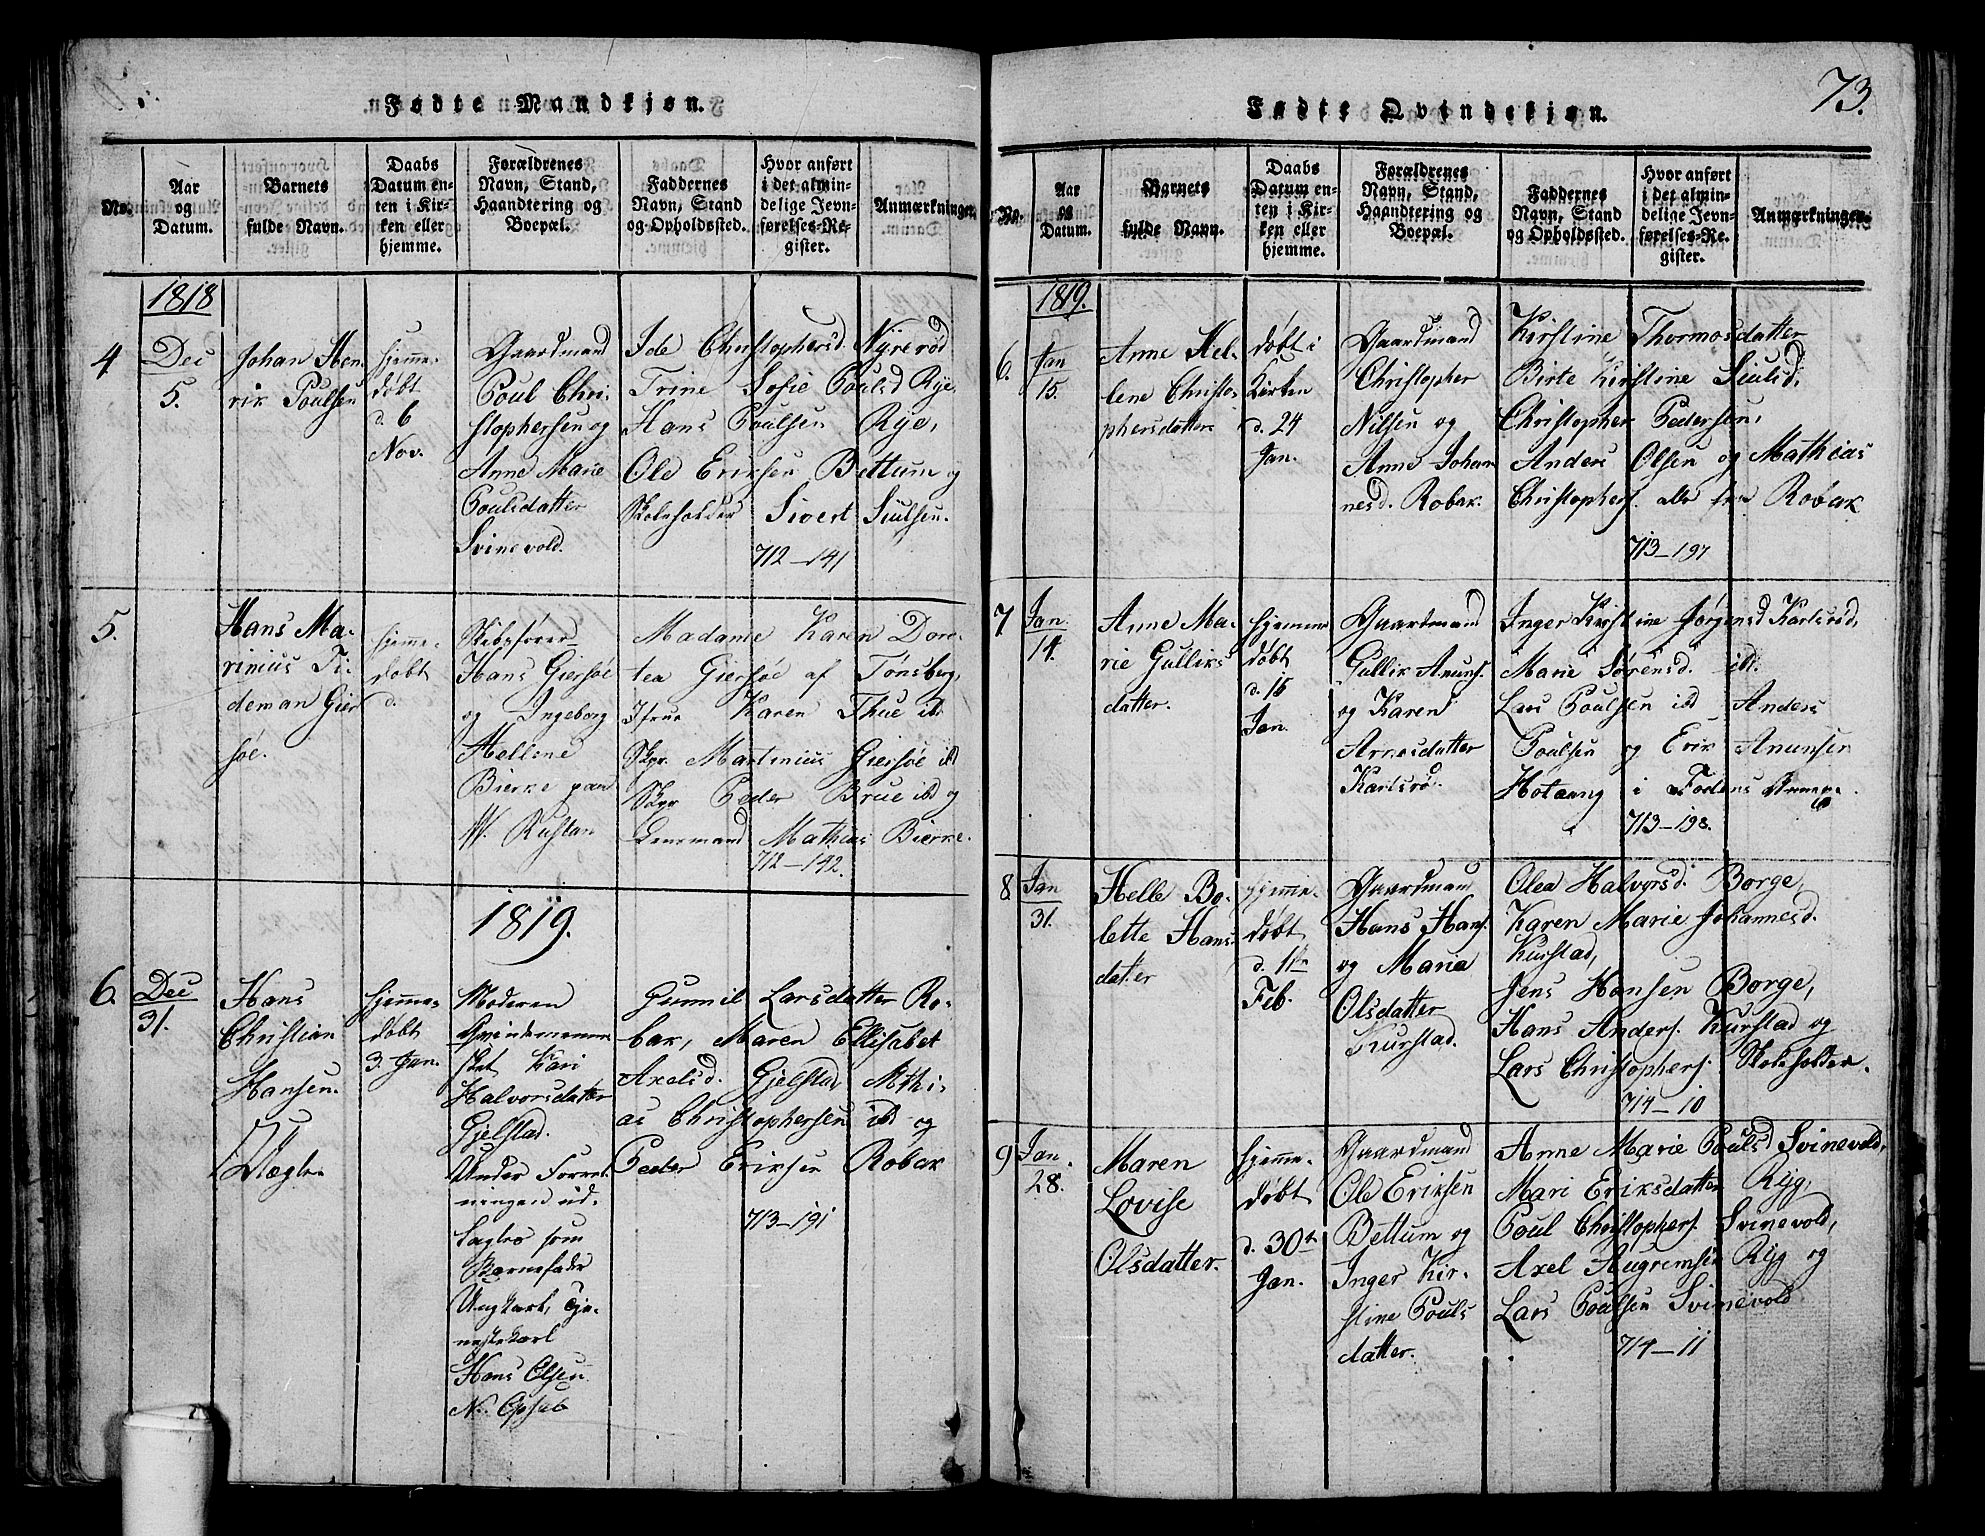 Fødte Mandkjøn.
No.
Aar
og
Datum.
Barnets
fulde Navn.
Daabs
Datum en-
ten i Kir-
ken eller
hjemme.
Forældrenes
Navn, Stand,
Haandtering og
Boepæl.
Faddernes
Navn, Stand
og Opholdssted.
Hvor anført
i det almin-
delige Jevn-
førelses-Re-
gister.
Anmærkninger.
1818
4
Dec
5.
Johan Hen
rik Poulsen
hjemme-
døbt
d. 6
Nov.
Gaardmand
Poul Chri-
stophersen og
Anne Marie
Poulsdatter
Svinevold.
Ide Christophersd. Nyrerød
Trine Sofie Poulsd Rye,
Hans Poulsen Rye,
Ole Eriksen Bettum og
Skoleholder Sivert Siulsen.
712-141
5.
Hans Ma-
rinius Ti-
deman Gier
søe.
hjemme-
døbt
d.
Skibsfører
Hans Giersøe
og Ingeborg
Hellene
Bierke paa
W. Rustan
Madame Karen Doro-
tea Giersøe af Tønsberg,
Jfrue Karen Thue ibd
Skpr. Martinius Giersøe ibd
Skpr Peder Brue ibd og
Lensmand Mathias Bierke.
712-142.
1819.
6.
Dec
31.
Hans
Christian
Hansen.
Uægte
hjemme-
døbt
3. Jan.
Moderen
Qvindemenne
sket Kari
Halvorsdatter
Gjelstad.
Under Forret
ningen ud-
lagdes som
Barnefader
Ungkarl, Tje-
nestekarl
Hans Olsen
N. Opsal
Gunnil Larsdatter Ro-
bak, Maren Ellisabet
Axelsd. Gjelstad Mathi-
as Christophersen ibd og
Peder Eriksen Robak
713-191
Fødte Qvindekjøn.
73.
No.
Aar
og
Datum.
Barnets
fulde Navn.
Daabs
Datum en-
ten i Kir-
ken eller
hjemme.
Forældrenes
Navn, Stand,
Haandtering og
Boepæl.
Faddernes
Navn, Stand
og Opholdssted.
Hvor anført
i det almin-
delige Jevn-
førelses-Re-
gister.
Anmærkninger.
1819.
6.
Jan
15.
Anne Hel-
lene Christo-
phersdatter
døbt i
Kirken
d. 24
Jan.
Gaardmand
Christopher
Nilsen og
Anne Johan
nesd. Robak.
Kirstine Thormosdatter
Birte Kirstine Siulsd,
Christopher Pedersen,
Anders Olsen og Mathias
Christophers. alle fra Robak
713-197
7
Jan.
14.
Anne Ma-
rie Gulliks
datter.
hjemme
døbt
d. 15
Jan.
Gaardmand
Gullik Anuns.
og Karen
Arnesdatter
Karlsrø.
Inger Kirstine Jørgensd Karlsrød,
Marie Sørensd. ibd.
Lars Poulsen ibd Anders
Poulsen og Erik Anunsen
Hotaang i Fodens
713-198.
8
Jan
31.
Helle Bo-
lette Hans
datter
hjemme-
døbt
d. 11te
Feb.
Gaardmand
Hans Hans.
og Maria
Olsdatter
Kurstad.
Olea Halvorsd. Borge,
Karen Marie Johannesd.
Kurstad,
Jens Hansen Borge,
Hans Anders. Kurstad og
Lars Christophers. Skoleholder.
714-10
9
Jan.
28.
Maren
Lovise
Olsdatter.
hjemme-
døbt
d. 30te
Jan.
Gaardmand
Ole Eriksen
Bettum og
Inger Kir-
stine Pouls
datter.
Anne Marie Poulsd Svinevold,
Mari Eriksdatter Ryg,
Poul Christophers. Svinevold,
Axel Augrimsen Ryg og
Lars Poulsen Svinevold
714-11